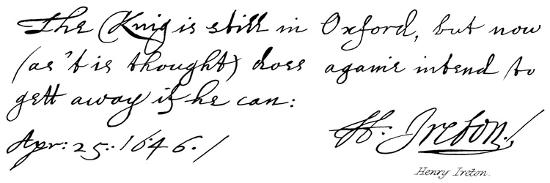 The Knig is still in Oxford, but now
(as 't is thought) does againe intend to
gett away if he can:
Apr: 25: 1646. /
H. Ireton /
Henry Ireton.